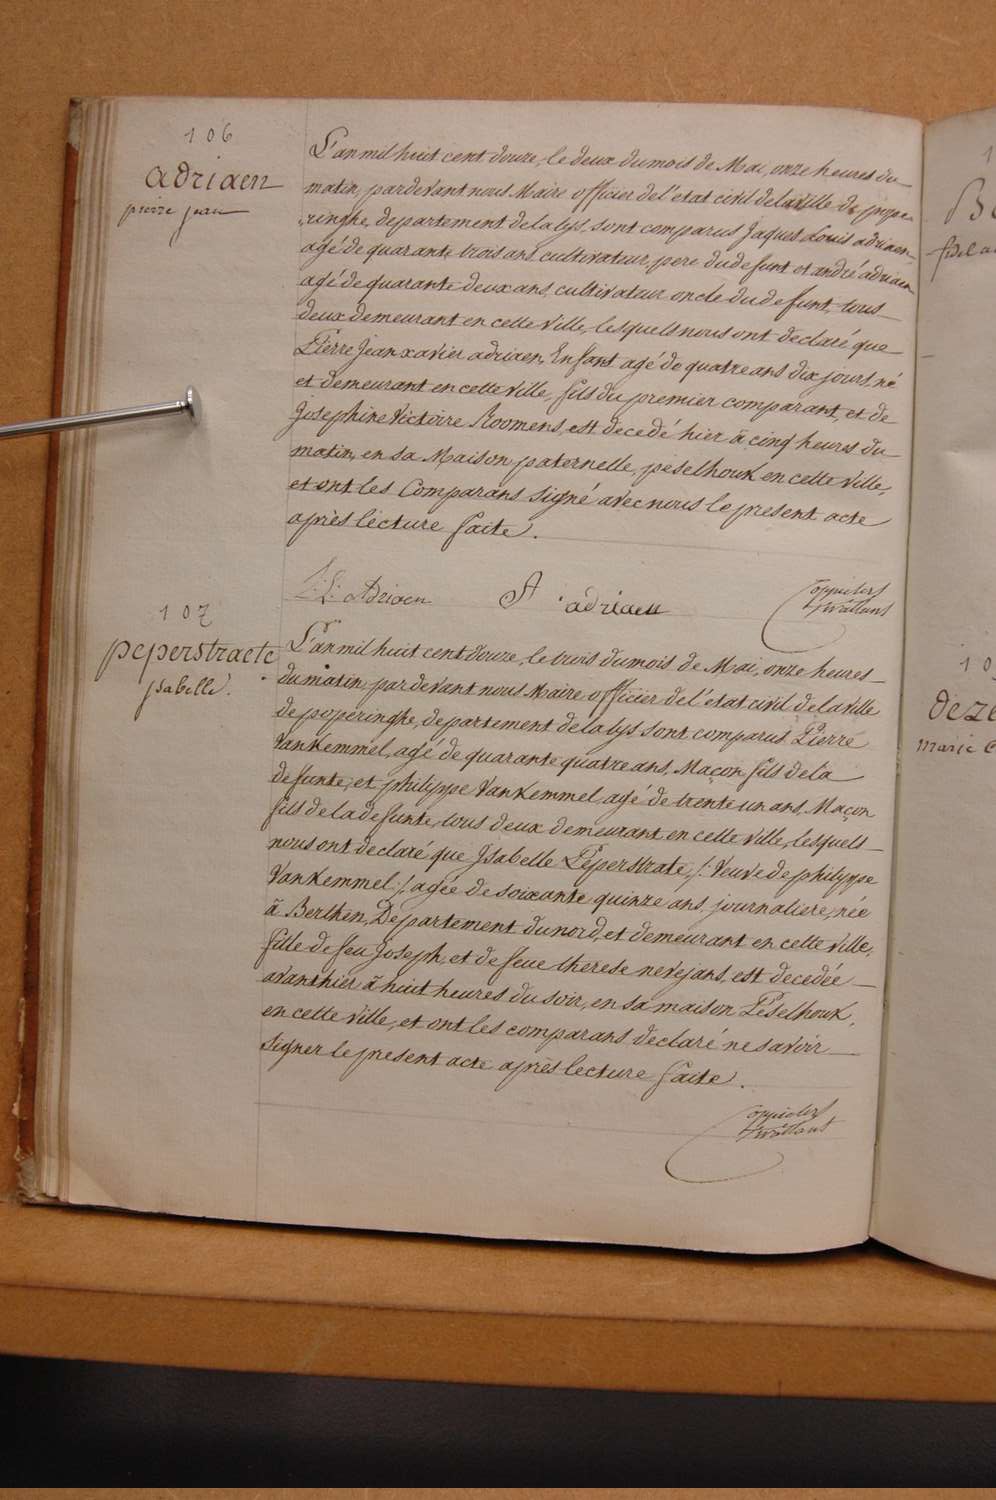 106
adriaen
pierre jean
L'an mil huit cent douze, le deux du mois de Mai, onze heures du
matin, pardevant nous Maire officier de l'etat civil de la ville de pope-
ringhe, departement de la lys, sont comparus Jaques Louis adriaen
agé de quarante trois ans cultivateur, pere du defunt et andré adriaen
agé de quarante deux ans, cultivateur oncle du defunt, tous
deux demeurant en cette ville, lesquels nous ont declaré que
Pierre Jean xavier adriaen, Enfant agé de quatre ans dix jours, né
et demeurant en cette ville, fils du premier comparant, et de
Josephine Victoire Roomens, est decedé hier à cinq heures du
matin, en sa Maison paternelle, peselhouk en cette ville,
et ont les Comparans signé avec nous le present acte
après lecture faite.
J: L: Adriaen A adriaen
107
peperstraete
ysabelle.
L'an mil huit cent douze, le trois du mois de Mai, onze heures
du matin, pardevant nous Maire officier de l'etat civil de la ville
de poperinghe, departement de la lys sont comparus Pierre
VanKemmel, agé de quarante quatre ans, Maçon fils de la
defunte, et philippe VanKemmel, agé de trente un ans, Maçon
fils de la defunte, tous deux demeurant en cette ville, lesquels
nous ont declaré, que Jsabelle Peperstrate, /: Veuve de philippe
VanKemmel :/ agée de soixante quinze ans, journaliere, née
à Berthen, Departement du nord, et demeurant en cette ville,
fille de feu Joseph, et de feue therese nevejans, est decedée
avanthier à huit heures du soir, en sa maison Peselhouk,
en cette ville, et ont les comparans declaré ne savoir
signer le present acte après lecture faite.
106
107
marie